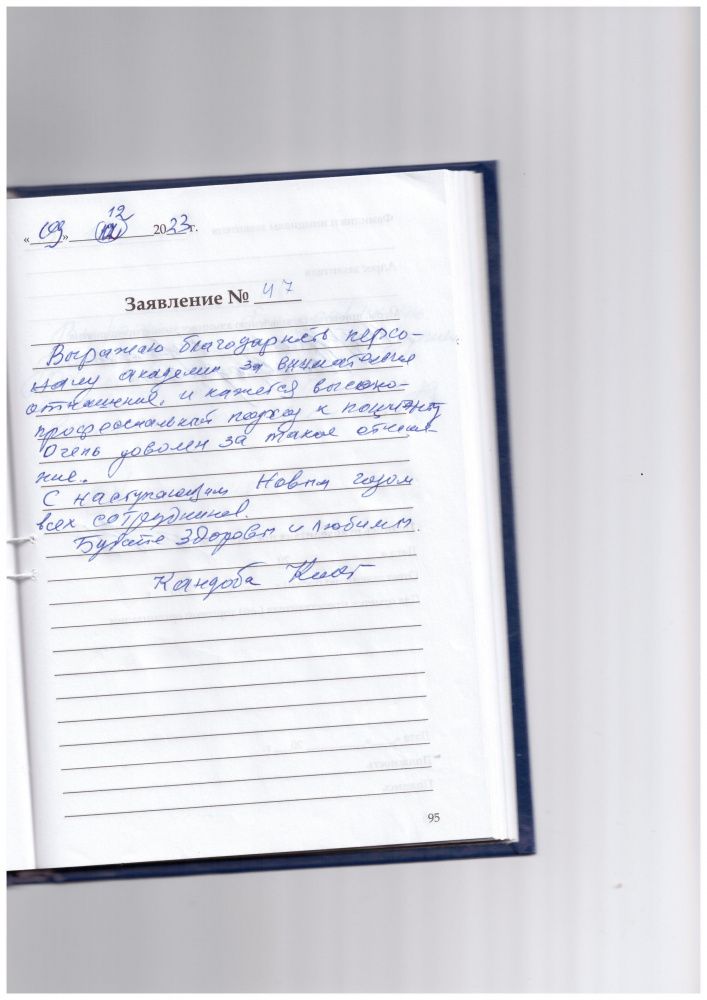 « 09 » 12 2023 г.
Заявление № 47
Выражаю благодарность персо-
налу академии за внимательное
отношение, и кажется высоко-
профессиональный подход к пациенту
Очень доволен за такое отноше-
ние.
С наступающим Новым годом
всех сотрудников.
Будьте здоровы и любимы.
Кандоба
95